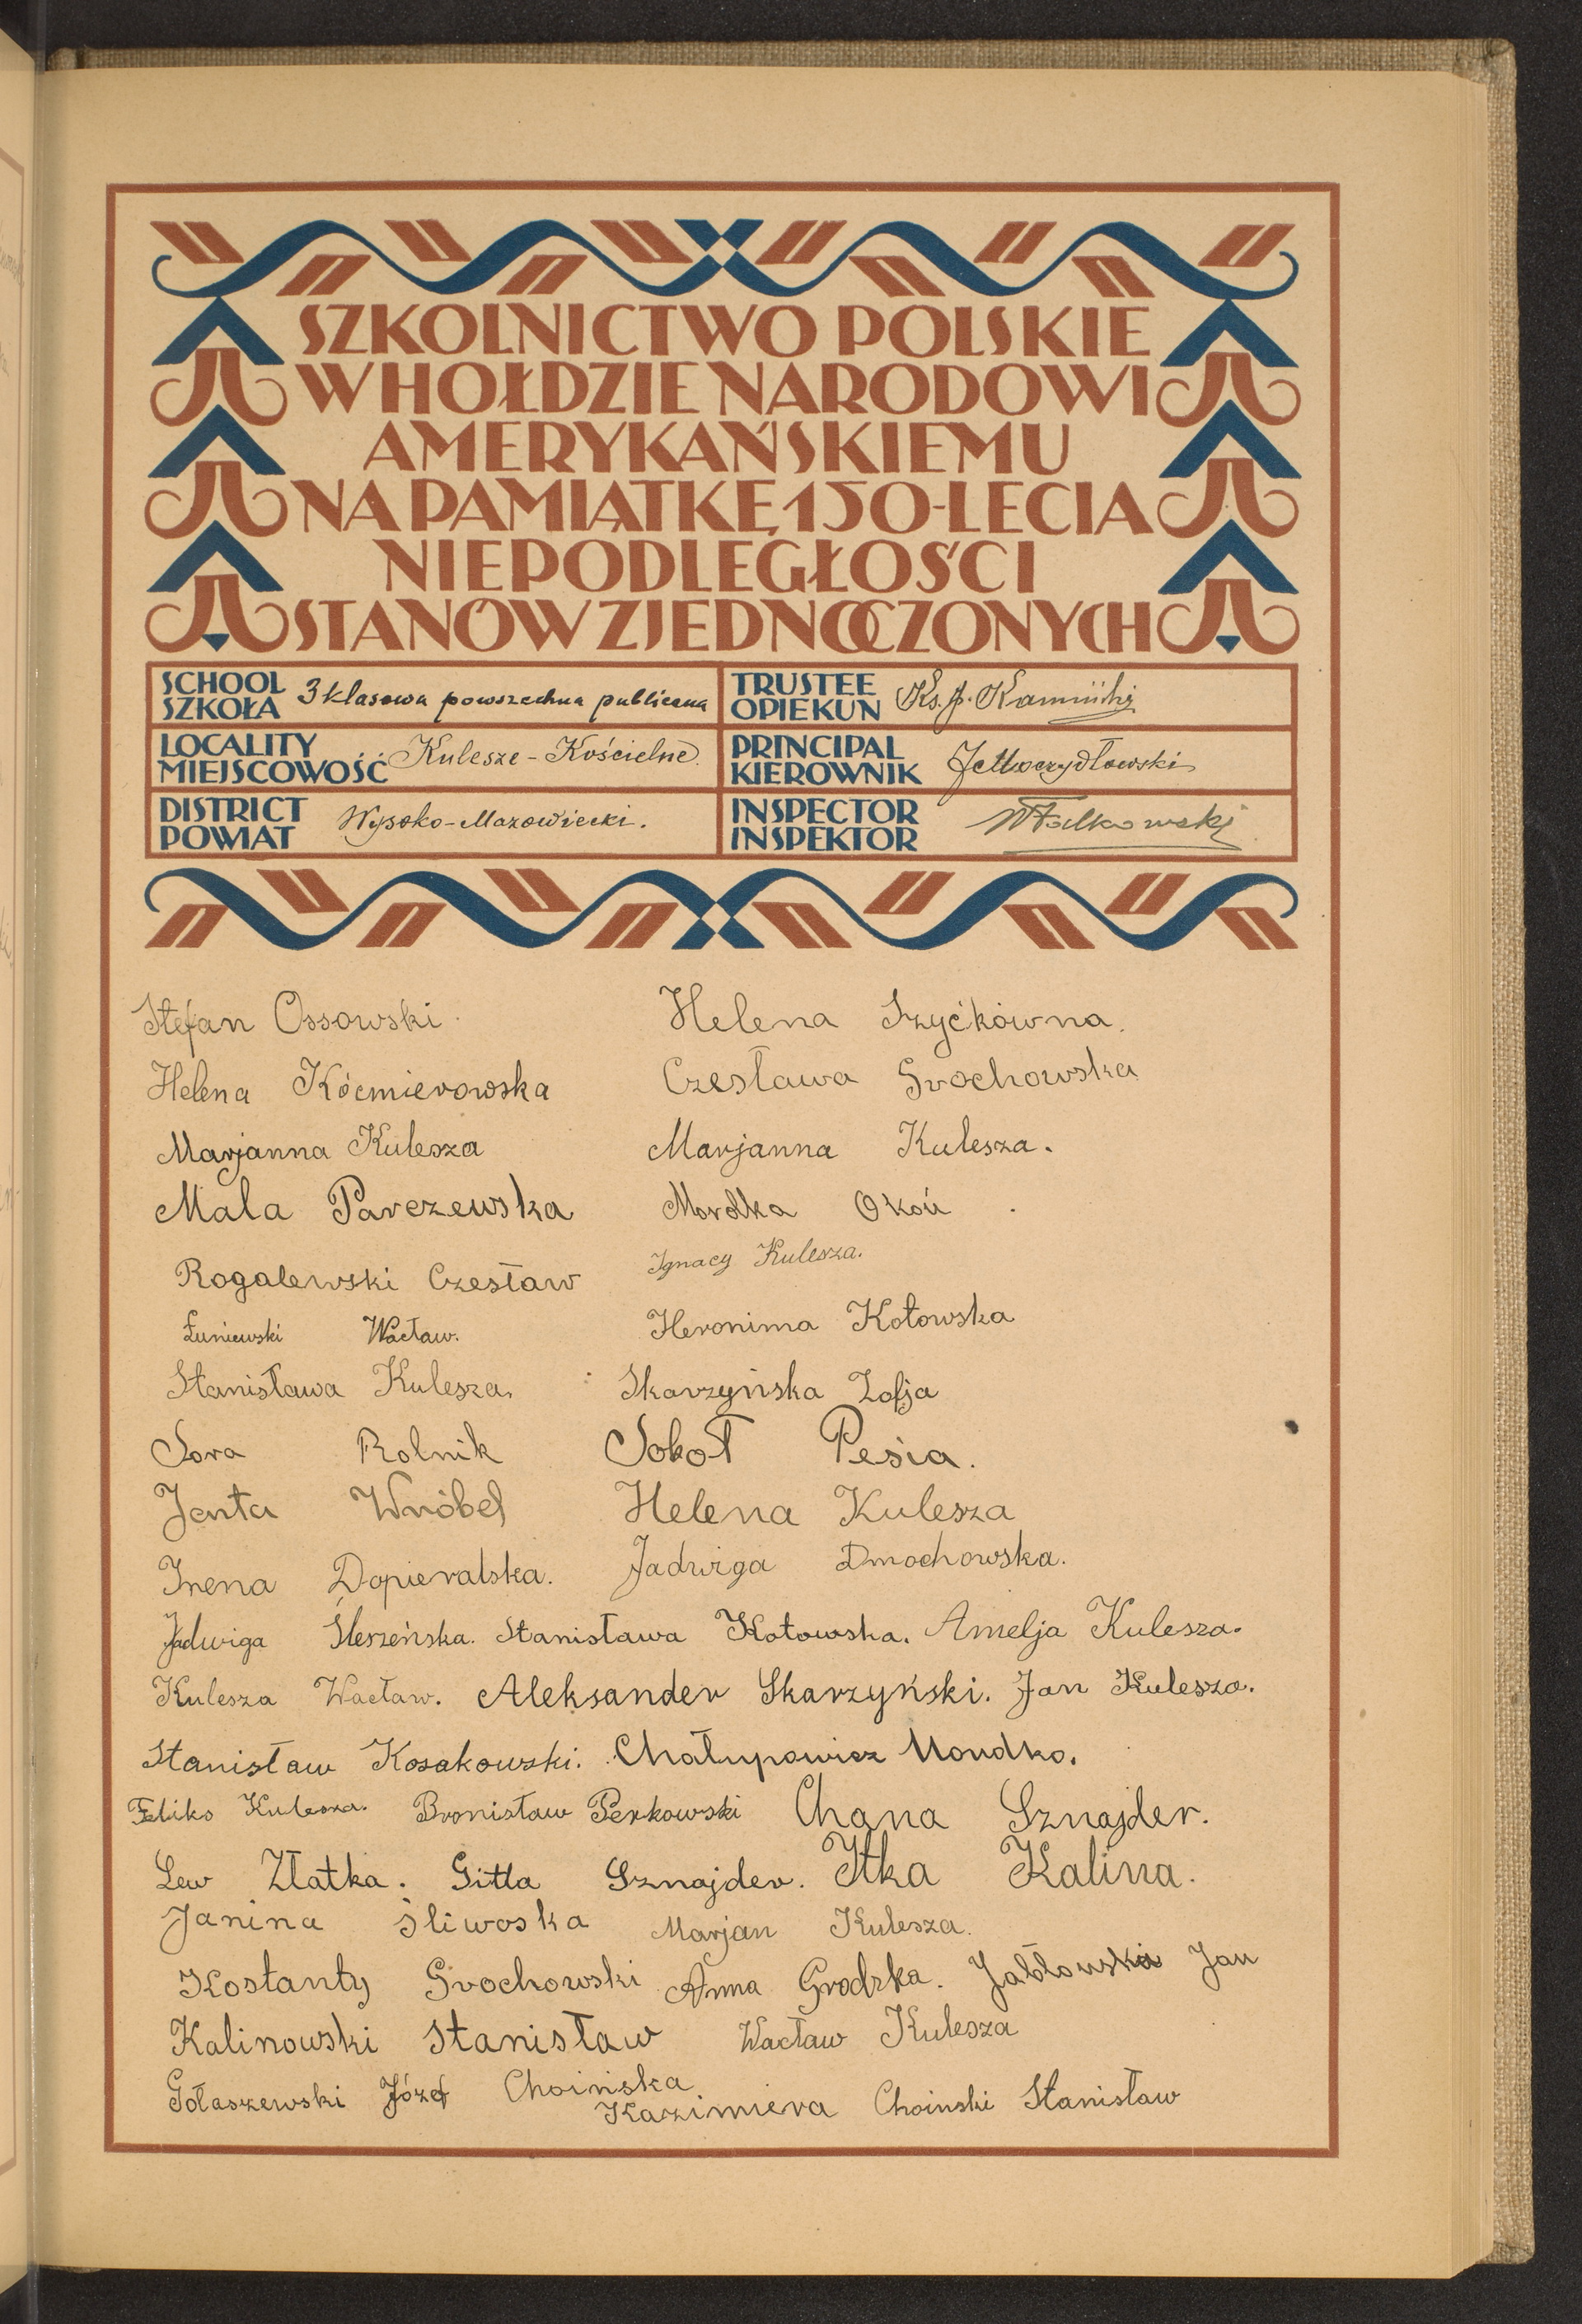 SZKOLNICTWO POLSKIE
W HOŁDZIE NARODOWI
AMERYKAŃSKIEMU
NA PAMIĄTKĘ 150-LECIA
NIEPODLEGŁOŚCI
STANÓW ZJEDNOCZONYCH
SCHOOL
SZKOŁA 3 klasowa powszechna publiczna
TRUSTEE
OPIEKUN Ks. J. Kamiński
LOCALITY
MIEJSCOWOŚĆ Kulesze-Kościelne
PRINCIPAL
KIEROWNIK
DISTRICT
POWIAT Wysoko-Mazowiecki.
INSPECTOR
INSPEKTOR WFalkowski
Stefan Ossowski Helena Szyćkówna.
Helena Kócmierowska Czesława Grochowska
Marjanna Kulesza Marjanna Kulesza.
Mala Parczewska Mordka Okoń
Rogalewski Czesław Ignacy Kulesza.
Łuniewski Wacław. Heronima Kotowska
Stanisława Kulesza. Skarzyńska Zofja
Sora Rolnik Sokoł Pesia.
Jenta Wróbel Helena Kulesza
Irena Dopieralska. Jadwiga Dmochowska.
Jadwiga Śleszeńska. Stanisława Kotowska. Amelja Kulesza.
Kulesza Wacław. Aleksander Skarzyński. Jan Kulesza.
Stanisław Kosakowski. Chałupowicz Mondko.
Feliks Kulesza. Bronisław Perkowski Chana Sznajder.
Lew Złatka. Gitla Sznajder. Itka Kalina.
Janina Śliwoska Marjan Kulesza.
Kostanty Grochowski Anna Grodzka. Jabłonski Jan
Kalinowski Stanisław Wacław Kulesza
Gołaszewski Józef Choińska Kazimiera Choinski Stanisław